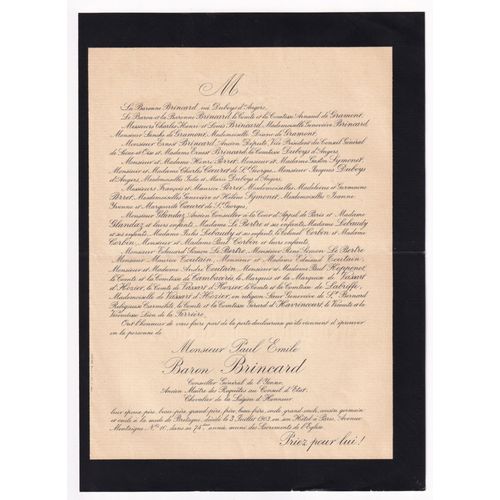 M
La Baronne Brincard, née Duboys d'Angers,
Le Baron et la Baronne Brincard, le Comte et la Comtesse Arnaud de Gramont,
Messieurs Charles Henri et Louis Brincard, Mademoiselle Geneviève Brincard,
Monsieur Sanche de Gramont, Mademoiselle Diane de Gramont,
Monsieur Ernest Brincard, Ancien Député, Vice Président du Conseil Général
de Seine et Oise et Madame Ernest Brincard, la Comtesse Duboys d'Angers,
Monsieur et Madame Henri Perret, Monsieur et Madame Gaston Symonet,
Monsieur et Madame Charles Cœuret de St Georges, Monsieur Jacques Duboys
d'Angers, Mesdemoiselles Julie et Marie Duboys d'Angers,
Messieurs François et Maurice Perret, Mesdemoiselles Madeleine et Germaine
Perret, Mesdemoiselles Geneviève et Hélène Symonet, Mesdemoiselles Jeanne
Yvonne et Marguerite Cœuret de St Georges,
Monsieur Glandaz, Ancien Conseiller à la Cour d'Appel de Paris et Madame
Glandaz et leurs enfants, Madame Le Bertre et ses enfants, Madame Lebaudy
et ses enfants, Madame Jules Lebaudy et ses enfants, le Colonel Corbin et Madame
Corbin, Monsieur et Madame Paul Corbin et leurs enfants,
Monsieur Edouard Simon Le Bertre, Monsieur René Simon Le Bertre
Monsieur Maurice Toutain, Monsieur et Madame Edmond Toutain,
Monsieur et Madame André Toutain, Monsieur et Madame Paul Hoppenot,
le Comte et la Comtesse de Cambacérès, le Marquis et la Marquise de Vassart
d'Hozier, le Comte de Vassart d'Hozier, le Comte et la Comtesse de Labriffe,
Mademoiselle de Vassart d'Hozier, en religion Sœur Geneviève de St Bernard
Religieuse Carmélite, le Comte et la Comtesse Gérard d'Havrincourt, le Vicomte et la
Vicomtesse Léon de la Ferrière,
Ont l'honneur de vous faire part de la perte douloureuse qu'ils viennent d'éprouver
en la personne de
Monsieur Paul Emile
Baron Brincard
Conseiller Général de l'Yonne
Ancien Maître des Requêtes au Conseil d'Etat
Chevalier de la Légion d'Honneur
leur époux, père, beau père, grand père, frère, beau frère, oncle, grand oncle, cousin germain
et oncle à la mode de Bretagne, décédé le 3 Juillet 1903, en son Hôtel à Paris, Avenue
Montaigne, No 10, dans sa 74ème année, muni des Sacrements de l'Eglise.
Priez pour lui!